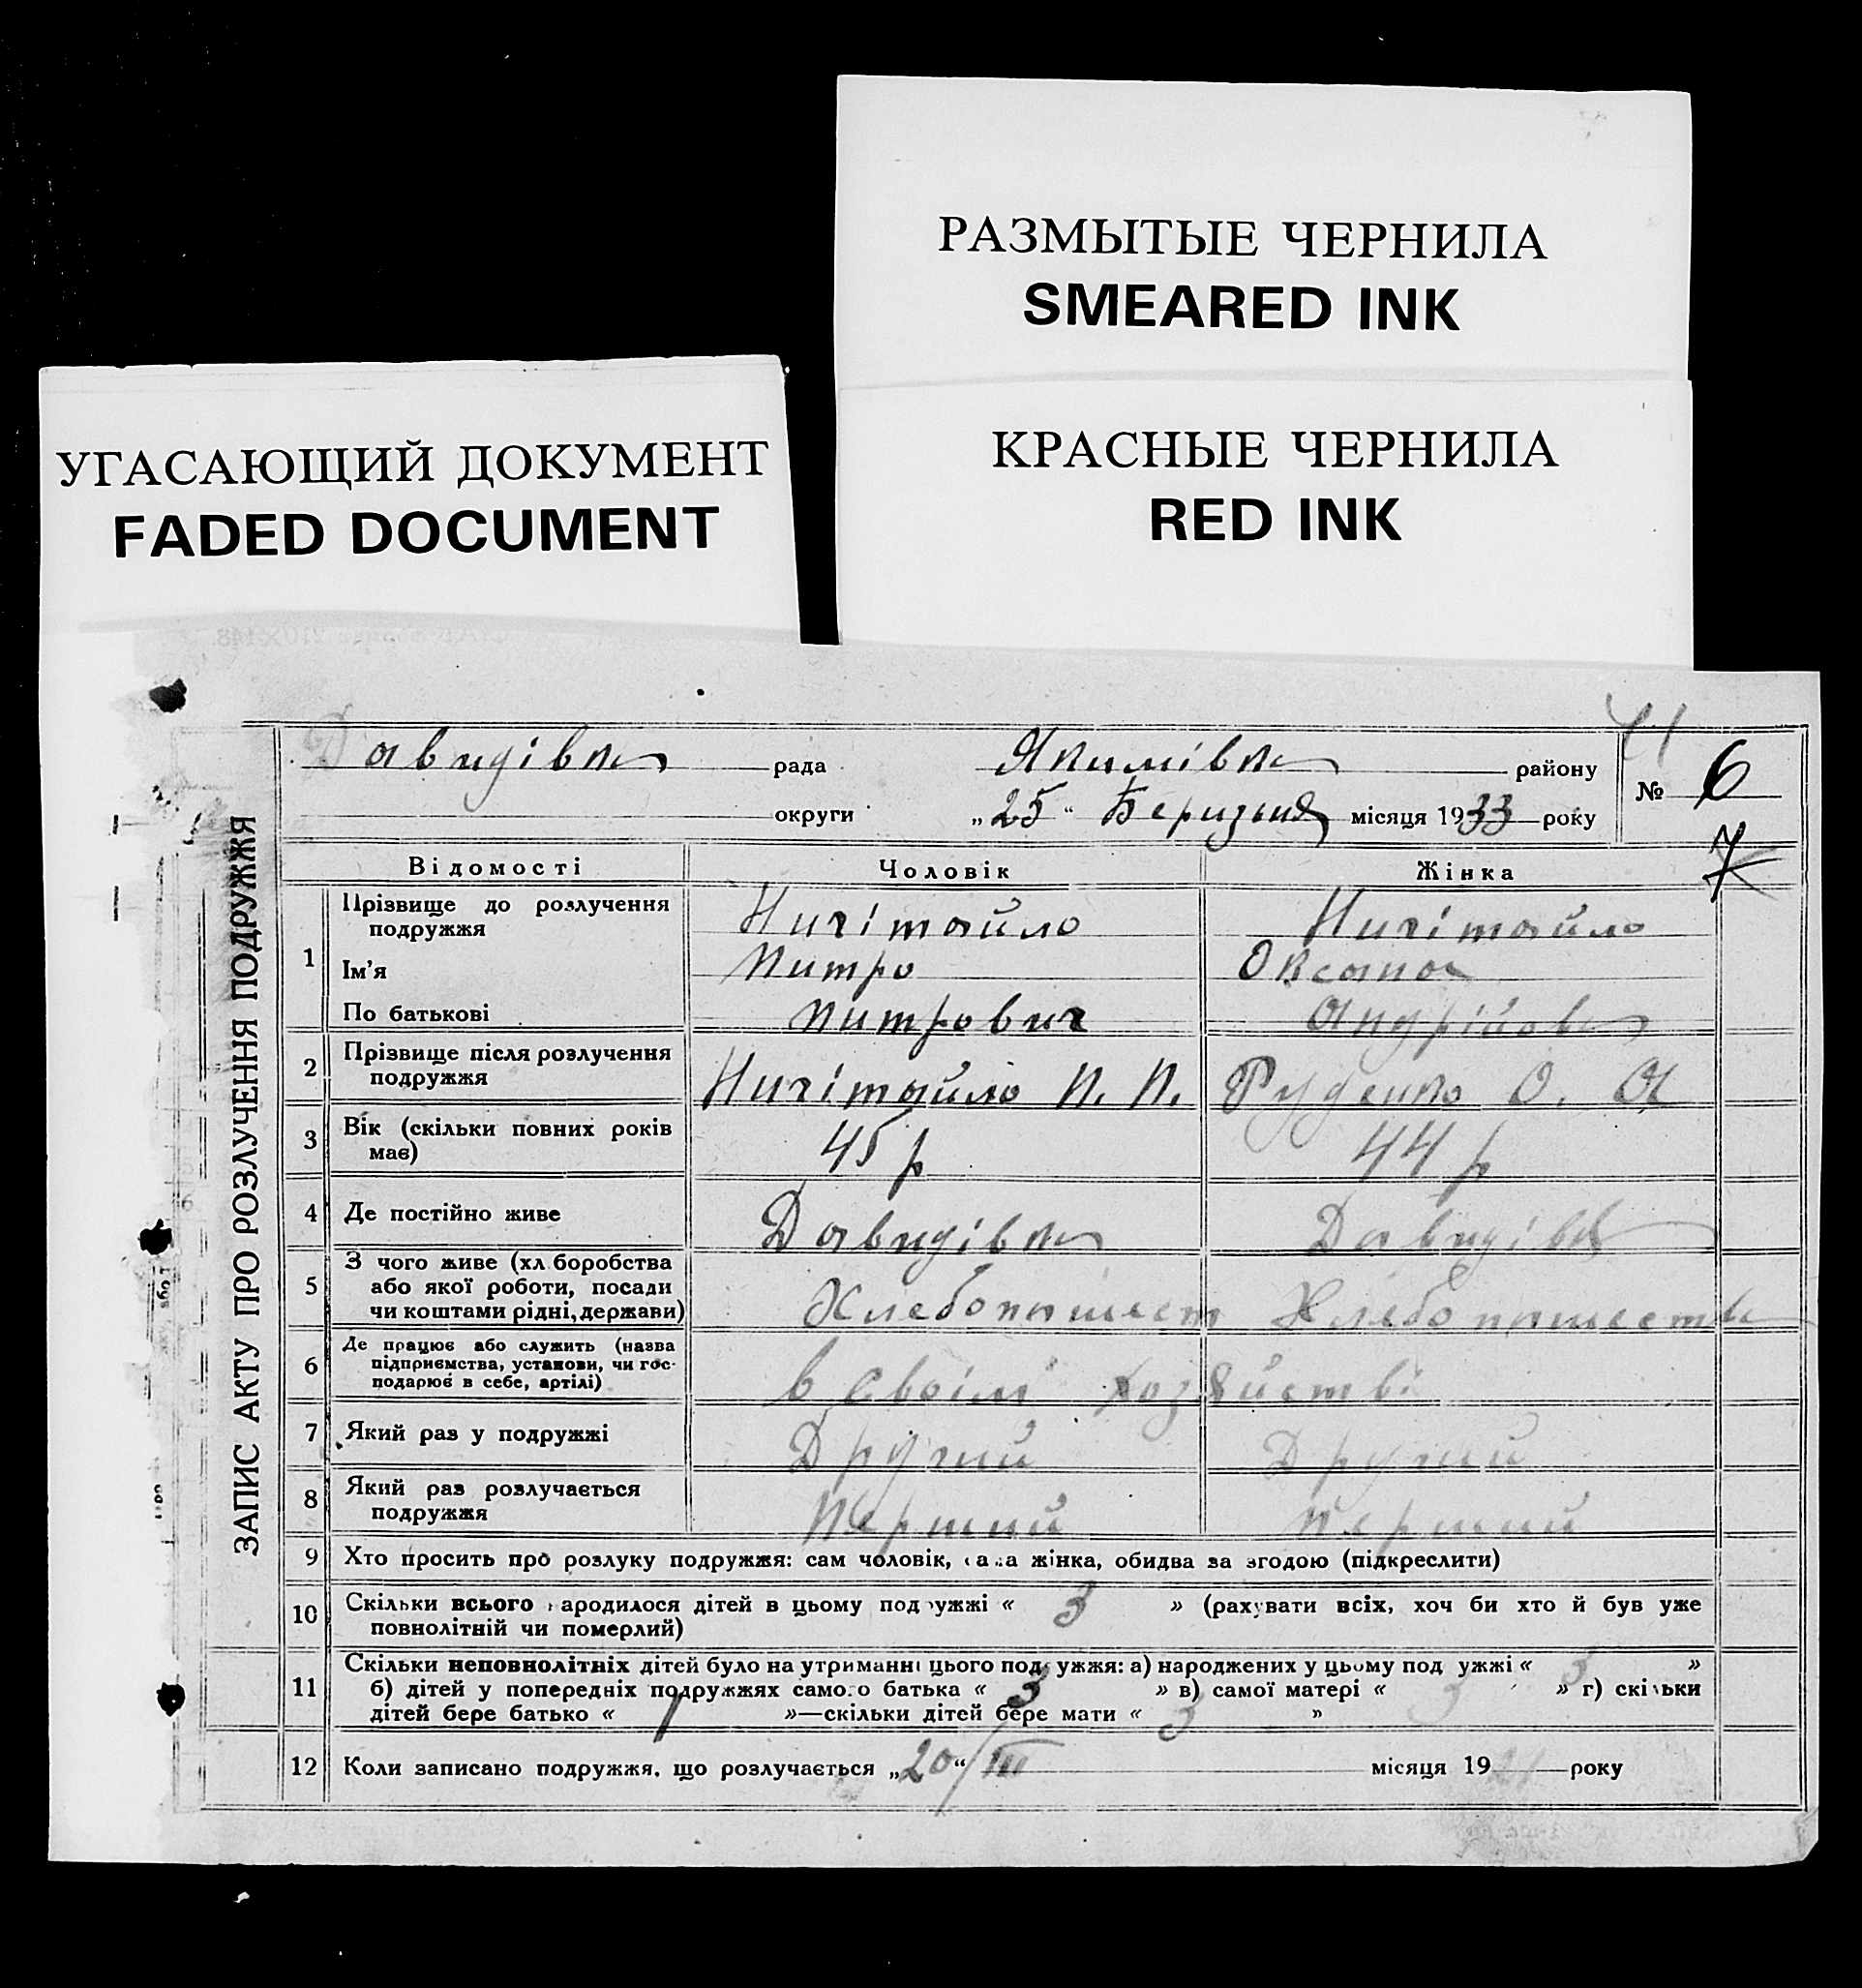 РАЗМЫТЫЕ ЧЕРНИЛА
SMEARED INK
КРАСНЫЕ ЧЕРНИЛА
RED INK
УГАСАЮЩИЙ ДОКУМЕНТ
FADED DOCUMENT
ЗАПИС АКТУ ПРО РОЗЛУЧЕННЯ ПОДРУЖЖЯ
Давидівка рада Якимівка району № 6
округи „25“ Беризьня місяця 1933 року
7
Відомості Чоловік Жінка
1 Прізвище до розлучення подружжя Ничітайло Ничітайло
Ім'я Питро Оксана
По батькові Питрович Андрійовна
2 Прізвище після розлучення подружжя Ничітайло П. П. Руденко О. А
3 Вік (скільки повних років має) 45 р 44 р
4 Де постійно живе Давидівка Давидівка
5 З чого живе (хл боробства
або якої роботи, посади
чи коштами рідні, держави) Хлебопашест Хлебопашеств
6 Де працює або служить (назва
підприємства, установи, чи гос-
подарює в себе, артілі) в своім хозяйстві
7 Який раз у подружжі Другий Другий
8 Який раз розлучається подружжя Перший Перший
9 Хто просить про розлуку подружжя: сам чоловік, сама жінка, обидва за згодою (підкреслити)
10 Скільки всього народилося дітей в цьому подружжі « 3 » (рахувати всіх, хоч би хто й був уже
повнолітній чи померлий)
11 Скільки неповнолітніх дітей було на утриманні цього подружжя: а) народжених у цьому подружжі « 3 »
б) дітей у попередніх подружжях самого батька « 3 » в) самої матері « 3 » г) скільки
дітей бере батько « 1 »—скільки дітей бере мати « 3 »
12 Коли записано подружжя, що розлучається „20“/III місяця 19 року